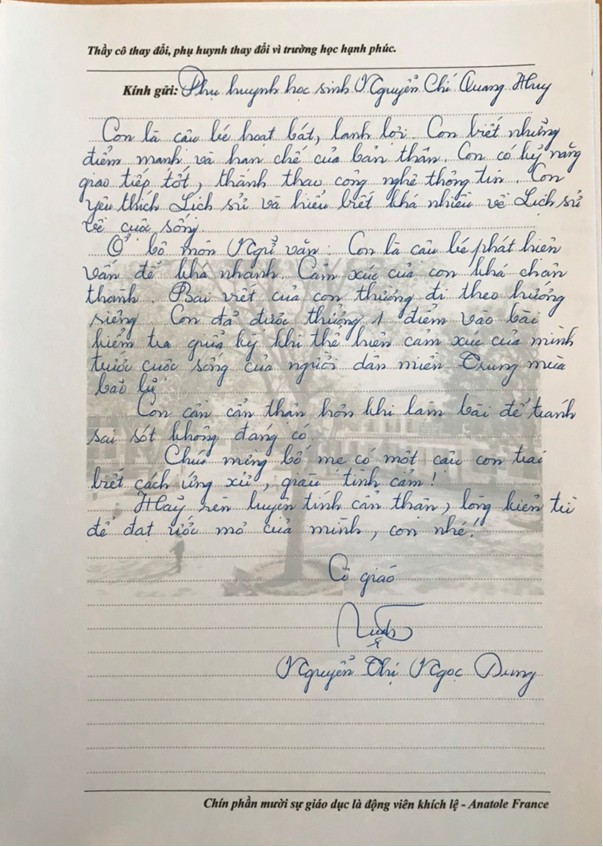 Thầy cô thay đổi, phụ huynh thay đổi vì trường học hạnh phúc.
Kính gửi: Phụ huynh học sinh Nguyễn Chí Quang Huy
Con là cậu bé hoạt bát, lanh lợi. Con biết những
điểm mạnh và hạn chế của bản thân. Con có kỹ năng
giao tiếp tốt, thành thạo công nghệ thông tin. Con
yêu thích Lịch sử và hiểu biết khá nhiều về Lịch sử
về cuộc sống.
Ở bộ môn Ngữ văn: Con là cậu bé phát hiện
vấn đề khá nhanh. Cảm xúc của con khá chân
thành. Bài viết của con thường đi theo hướng
riêng. Con đã được thưởng 1 điểm vào bài
kiểm tra giữa kỳ khi thể hiện cảm xúc của mình
trước cuộc sống của người dân miền Trung mùa
bão lũ.
Con cần cẩn thận hơn khi làm bài để tránh
sai sót không đáng có.
Chúc mừng bố mẹ có một cậu con trai
biết cách ứng xử, giàu tình cảm!
Hãy rèn luyện tính cẩn thận, lòng kiên trì
để đạt ước mơ của mình, con nhé!
Cô giáo
Nguyễn Thị Ngọc Dung
Chín phần mười sự giáo dục là động viên khích lệ - Anatole France